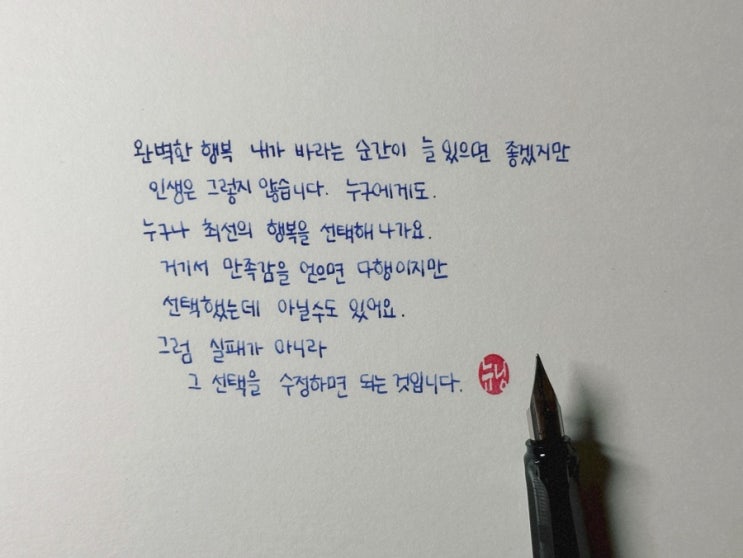 완벽한 행복 내가 바라는 순간이 늘 있으면 좋겠지만
인생은 그렇지 않습니다. 누구에게도.
누구나 최선의 행복을 선택해 나가요.
거기서 만족감을 얻으면 다행이지만
선택했는데 아닐수도 있어요.
그럼 실패가 아니라
그 선택을 수정하면 되는 것입니다.
뉴닝